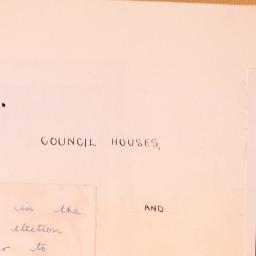 COUNCIL HOUSES,
AND
in the
election
to